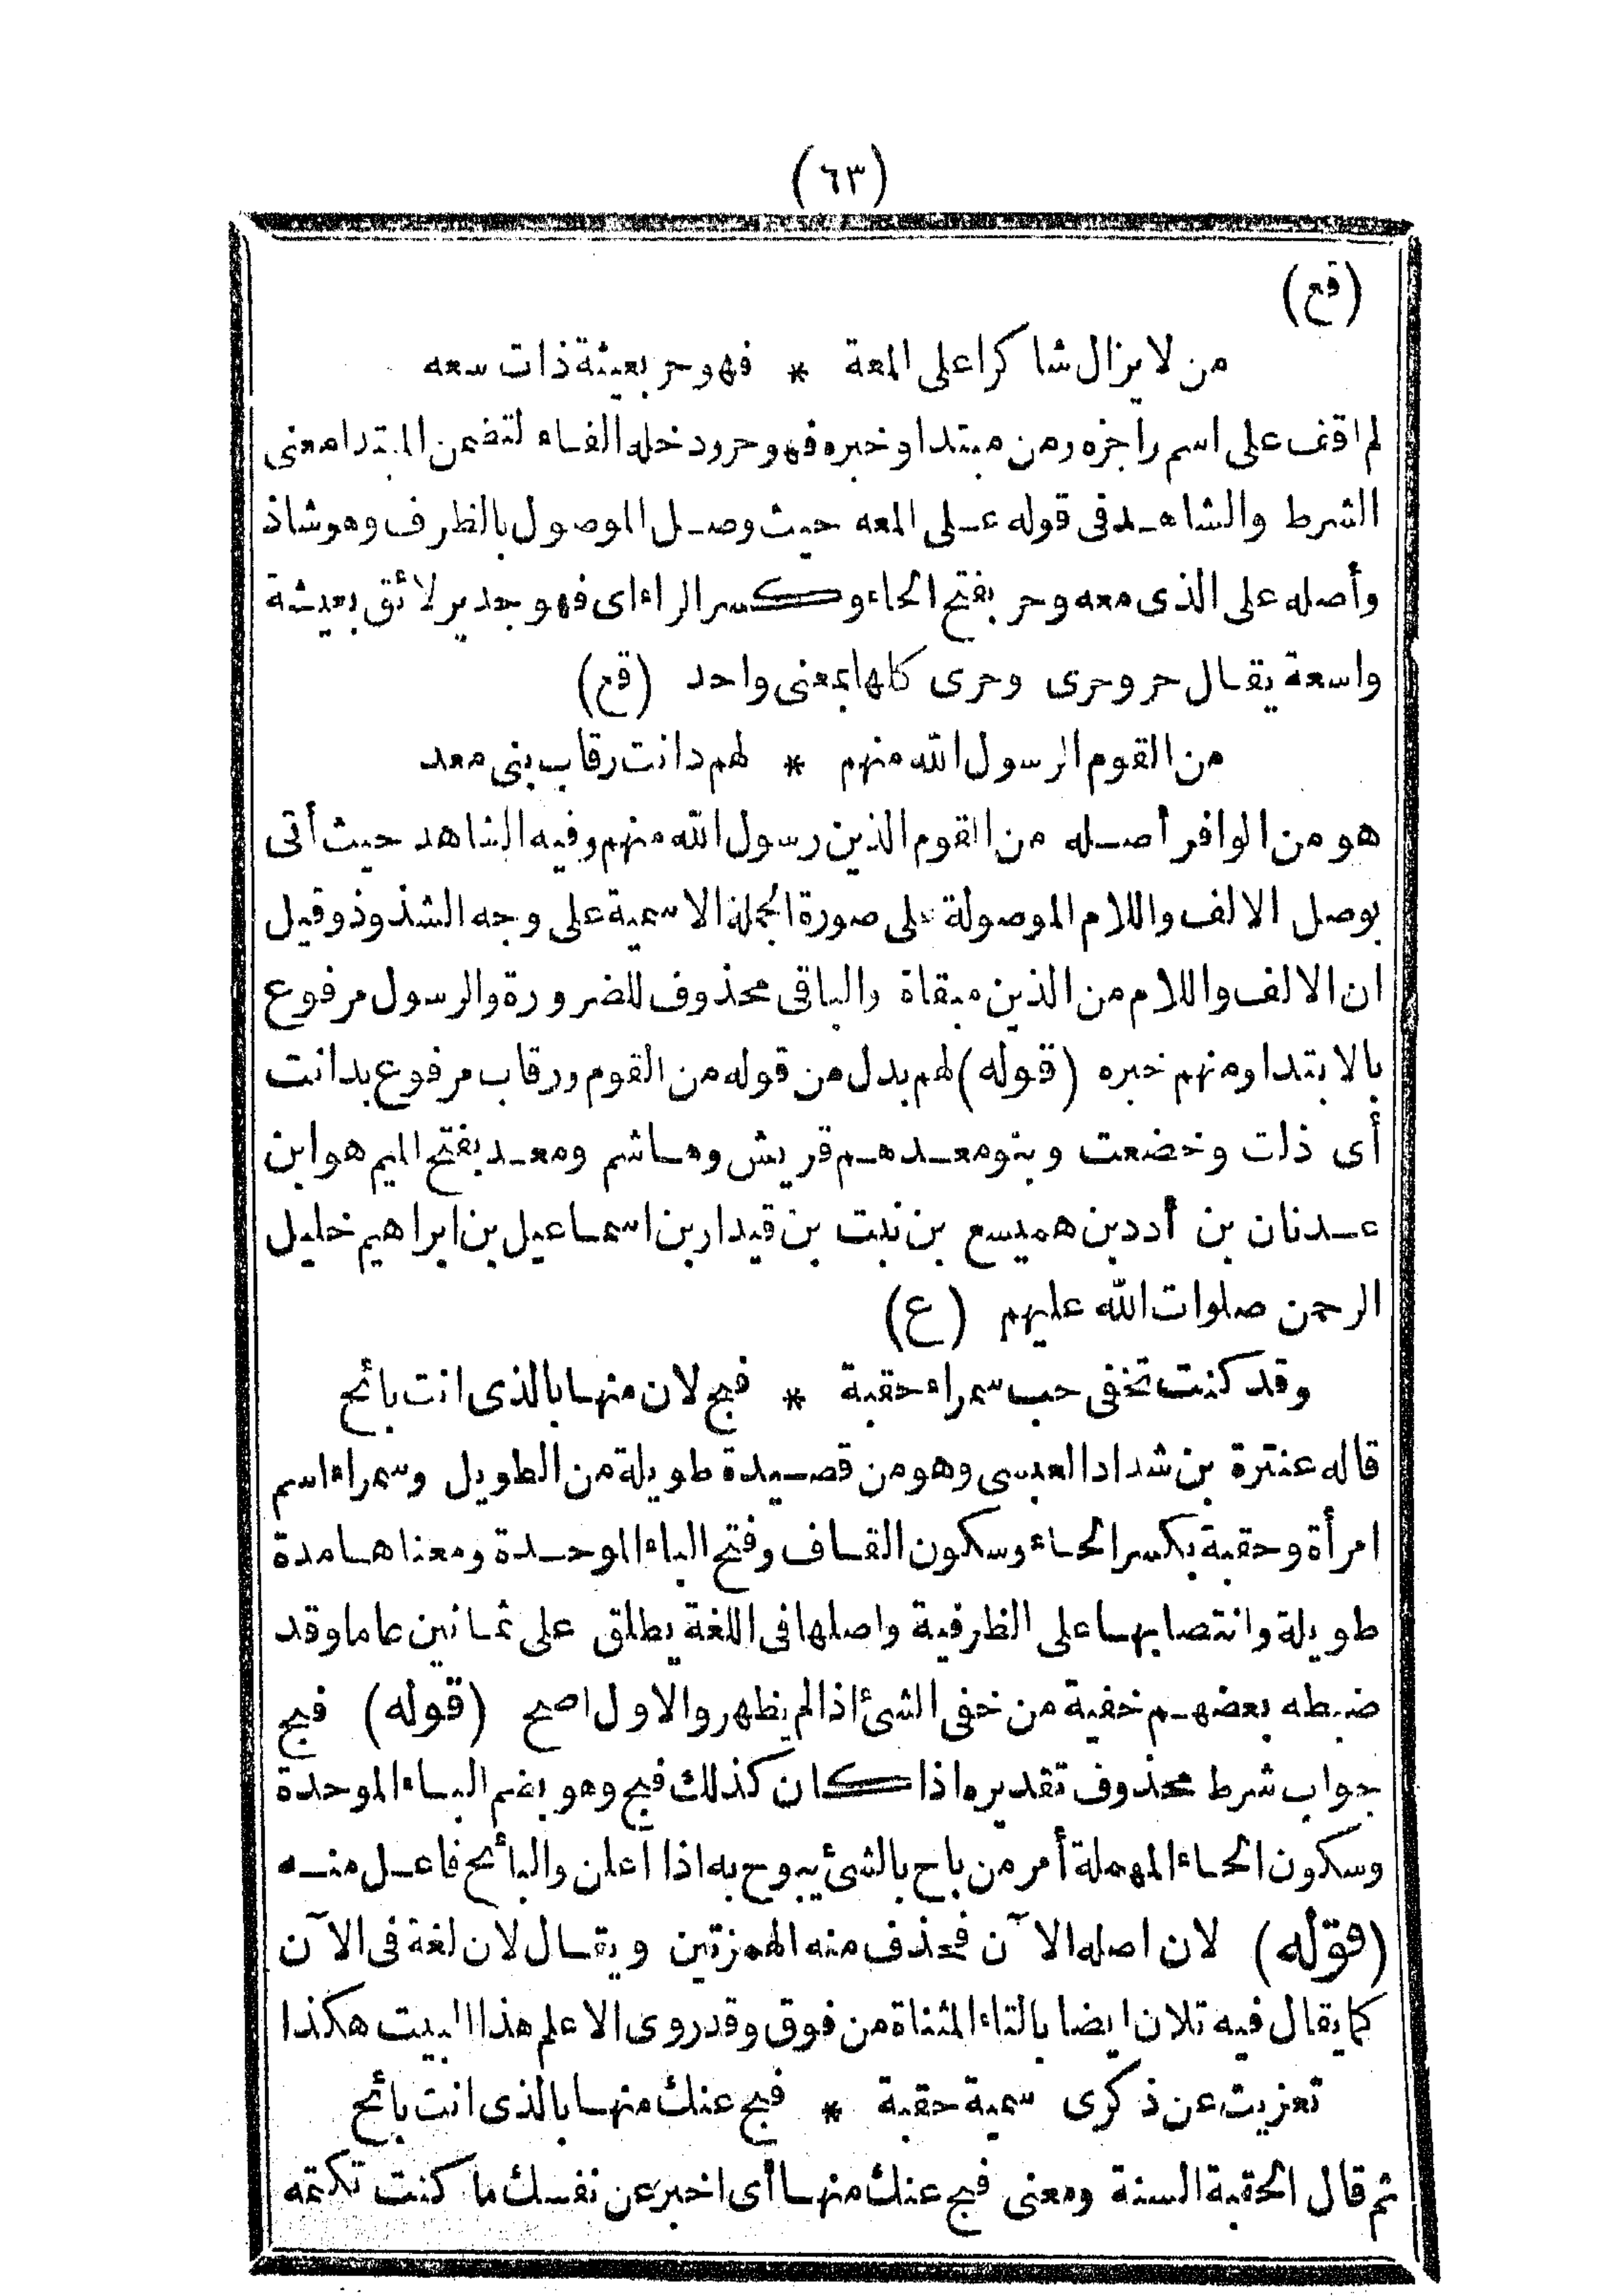 (٦٣)
(قع)
من لا يزال شاكرا على المعة * فهو حر بعيشة ذات سعه
لم اقف على اسم راجزه ومن مبتدا وخبره فهو حر ودخله الفاء لتضمن المبتدا معنى
الشرط والشاهد فى قوله على المعه حيث وصل الموصول بالظرف وهو شاذ
وأصله على الذى معه وحر بفتح الحاء وكسر الراء اى فهو جدير لائق بعيشة
واسعة يقال حر وحرى وحرى كلها بمعنى واحد (قع)
من القوم الرسول الله منهم * لهم دانت رقاب بنى معد
هو من الوافر أصله من القوم الذين رسول الله منهم وفيه الشاهد حيث أتى
بوصل الالف واللام الموصولة على صورة الجملة الاسمية على وجه الشذوذ وقيل
ان الالف واللام من الذين مبقاة والباقى محذوف للضرورة والرسول مرفوع
بالابتدا ومنهم خبره (قوله) لهم بدل من قوله من القوم ورقاب مرفوع بدانت
أى ذلت وخضعت وبنو معد هم قريش وهاشم ومعد بفتح الميم هو ابن
عدنان بن أدد بن هميسع بن نبت بن قيدار بن اسماعيل بن ابراهيم خليل
الرحمن صلوات الله عليهم (ع)
وقد كنت تخفى حب سمراء حقبة * فبح لان منها بالذى انت بائح
قاله عنترة بن شداد العبسى وهو من قصيدة طويلة من الطويل وسمراء اسم
امرأة وحقبة بكسر الحاء وسكون القاف وفتح الباء الموحدة ومعناها مدة
طويلة وانتصابها على الظرفية واصلها فى اللغة يطلق على ثمانين عاما وقد
ضبطه بعضهم خفية من خفى الشئ اذا لم يظهر والاول اصح (قوله) فبح
جواب شرط محذوف تقديره اذا كان كذلك فبح وهو بضم الباء الموحدة
وسكون الحاء المهملة أمر من باح بالشئ يبوح به اذا اعلن والبائح فاعل منه
(قوله) لان اصله الآن فحذف منه الهمزتين ويقال لان لغة فى الآن
كما يقال فيه تلان ايضا بالتاء المثناة من فوق وقد روى الاعلم هذا البيت هكذا
تعزيت عن ذكرى سمية حقبة * فبح عنك منها بالذى انت بائح
ثم قال الحقبة السنة ومعنى فبح عنك منها أى اخبر عن نفسك ما كنت تكتمه